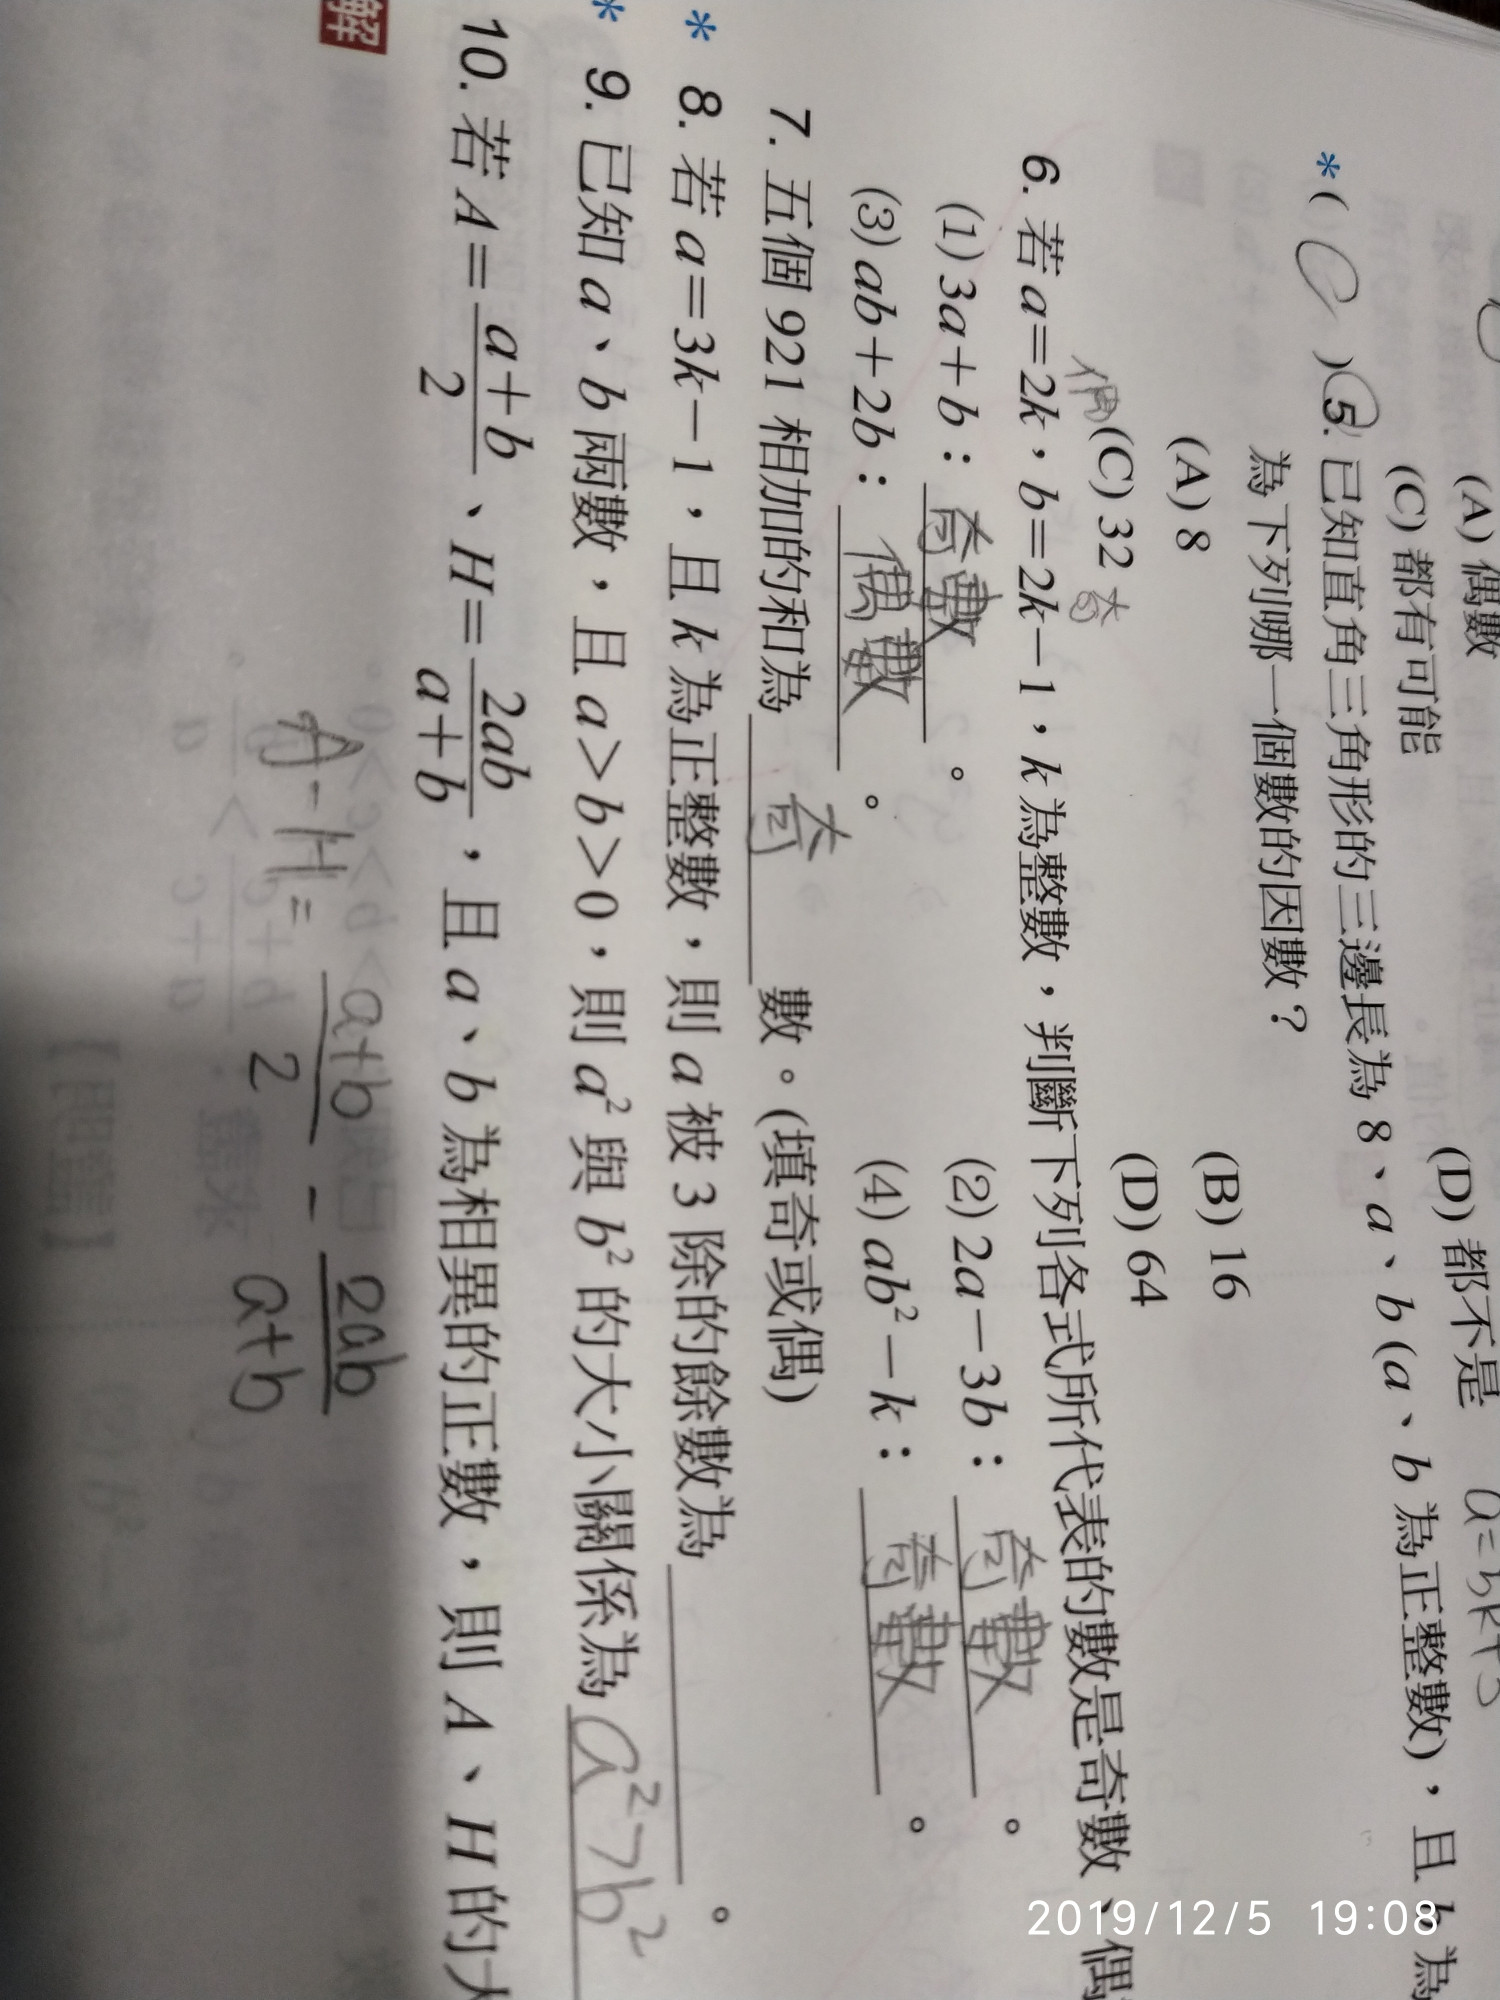 (A) 偶數
(C) 都有可能
(D) 都不是
* ( ) 5. 已知直角三角形的三邊長為 8、a、b (a、b 為正整數)，且 b 為
為下列哪一個數的因數？
(A) 8
(B) 16
偶 (C) 32 奇
(D) 64
6. 若 a=2k，b=2k−1，k 為整數，判斷下列各式所代表的數是奇數、偶
(1) 3a+b：奇數。
(2) 2a−3b：奇數。
(3) ab+2b：偶數。
(4) ab²−k：奇數。
7. 五個 921 相加的和為 奇 數。(填奇或偶)
* 8. 若 a=3k−1，且 k 為正整數，則 a 被 3 除的餘數為。
* 9. 已知 a、b 兩數，且 a>b>0，則 a² 與 b² 的大小關係為 a²>b²
10. 若 A=(a+b)/2、H=2ab/(a+b)，且 a、b 為相異的正數，則 A、H 的大
解
A-H= (a+b)/2 - 2ab/(a+b)
2019/12/5 19:08